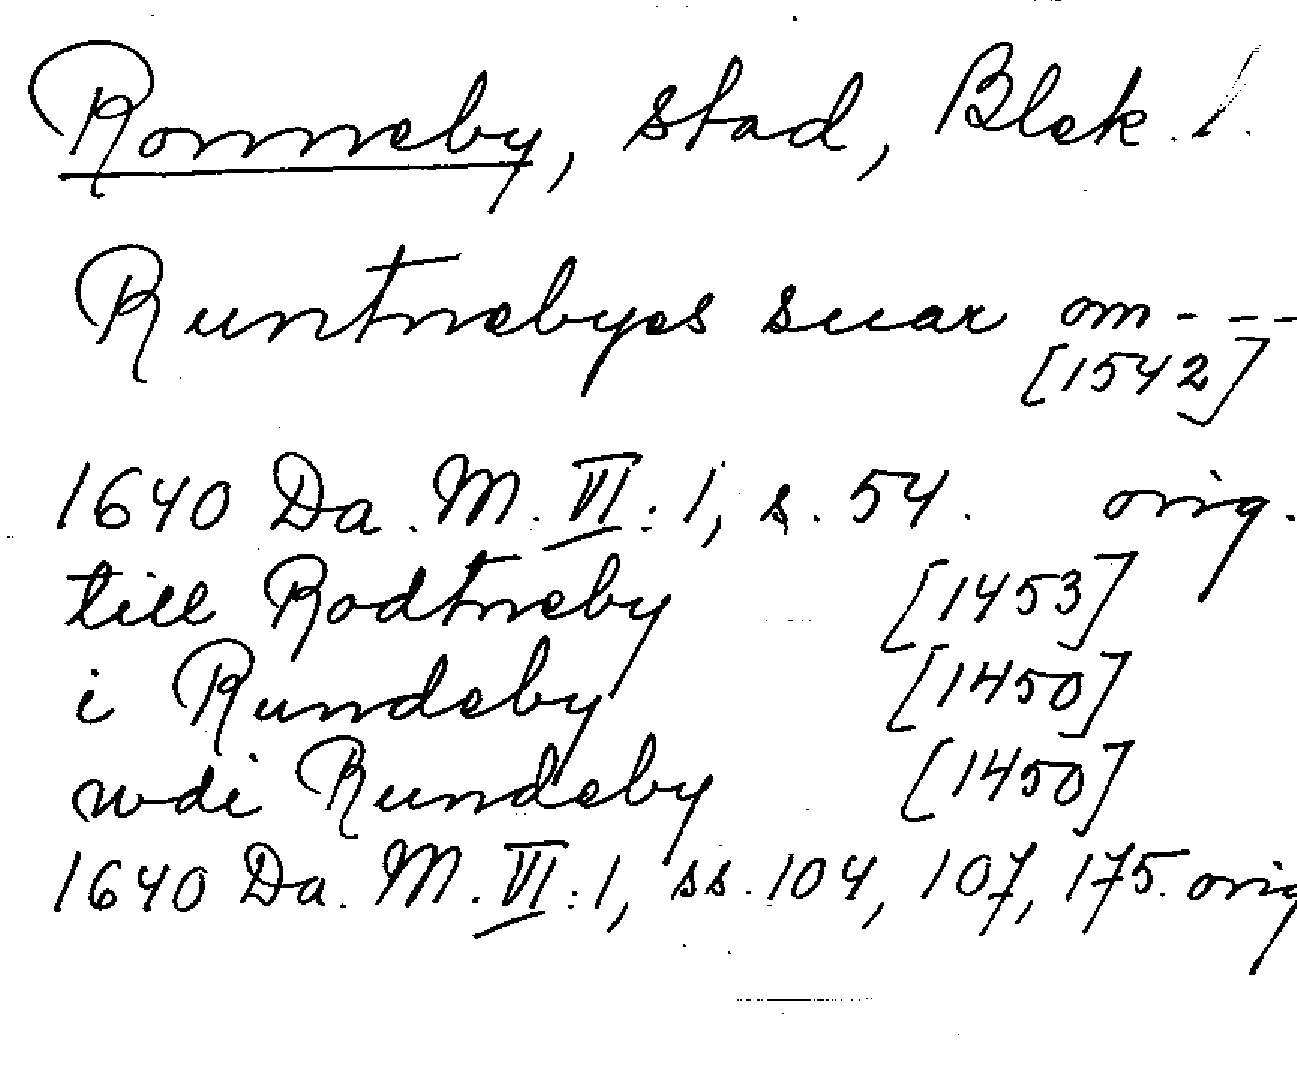 Ronneby, stad, Blek. l.
Runtnebyes suar om - - -
[1542]
1640 Da. M. VI: 1, s. 54. orig.
till Rodtneby [1453]
i Rundeby [1450]
wdi Rundeby [1450]
1640 Da. M. VI: 1, ss. 104, 107, 175. orig